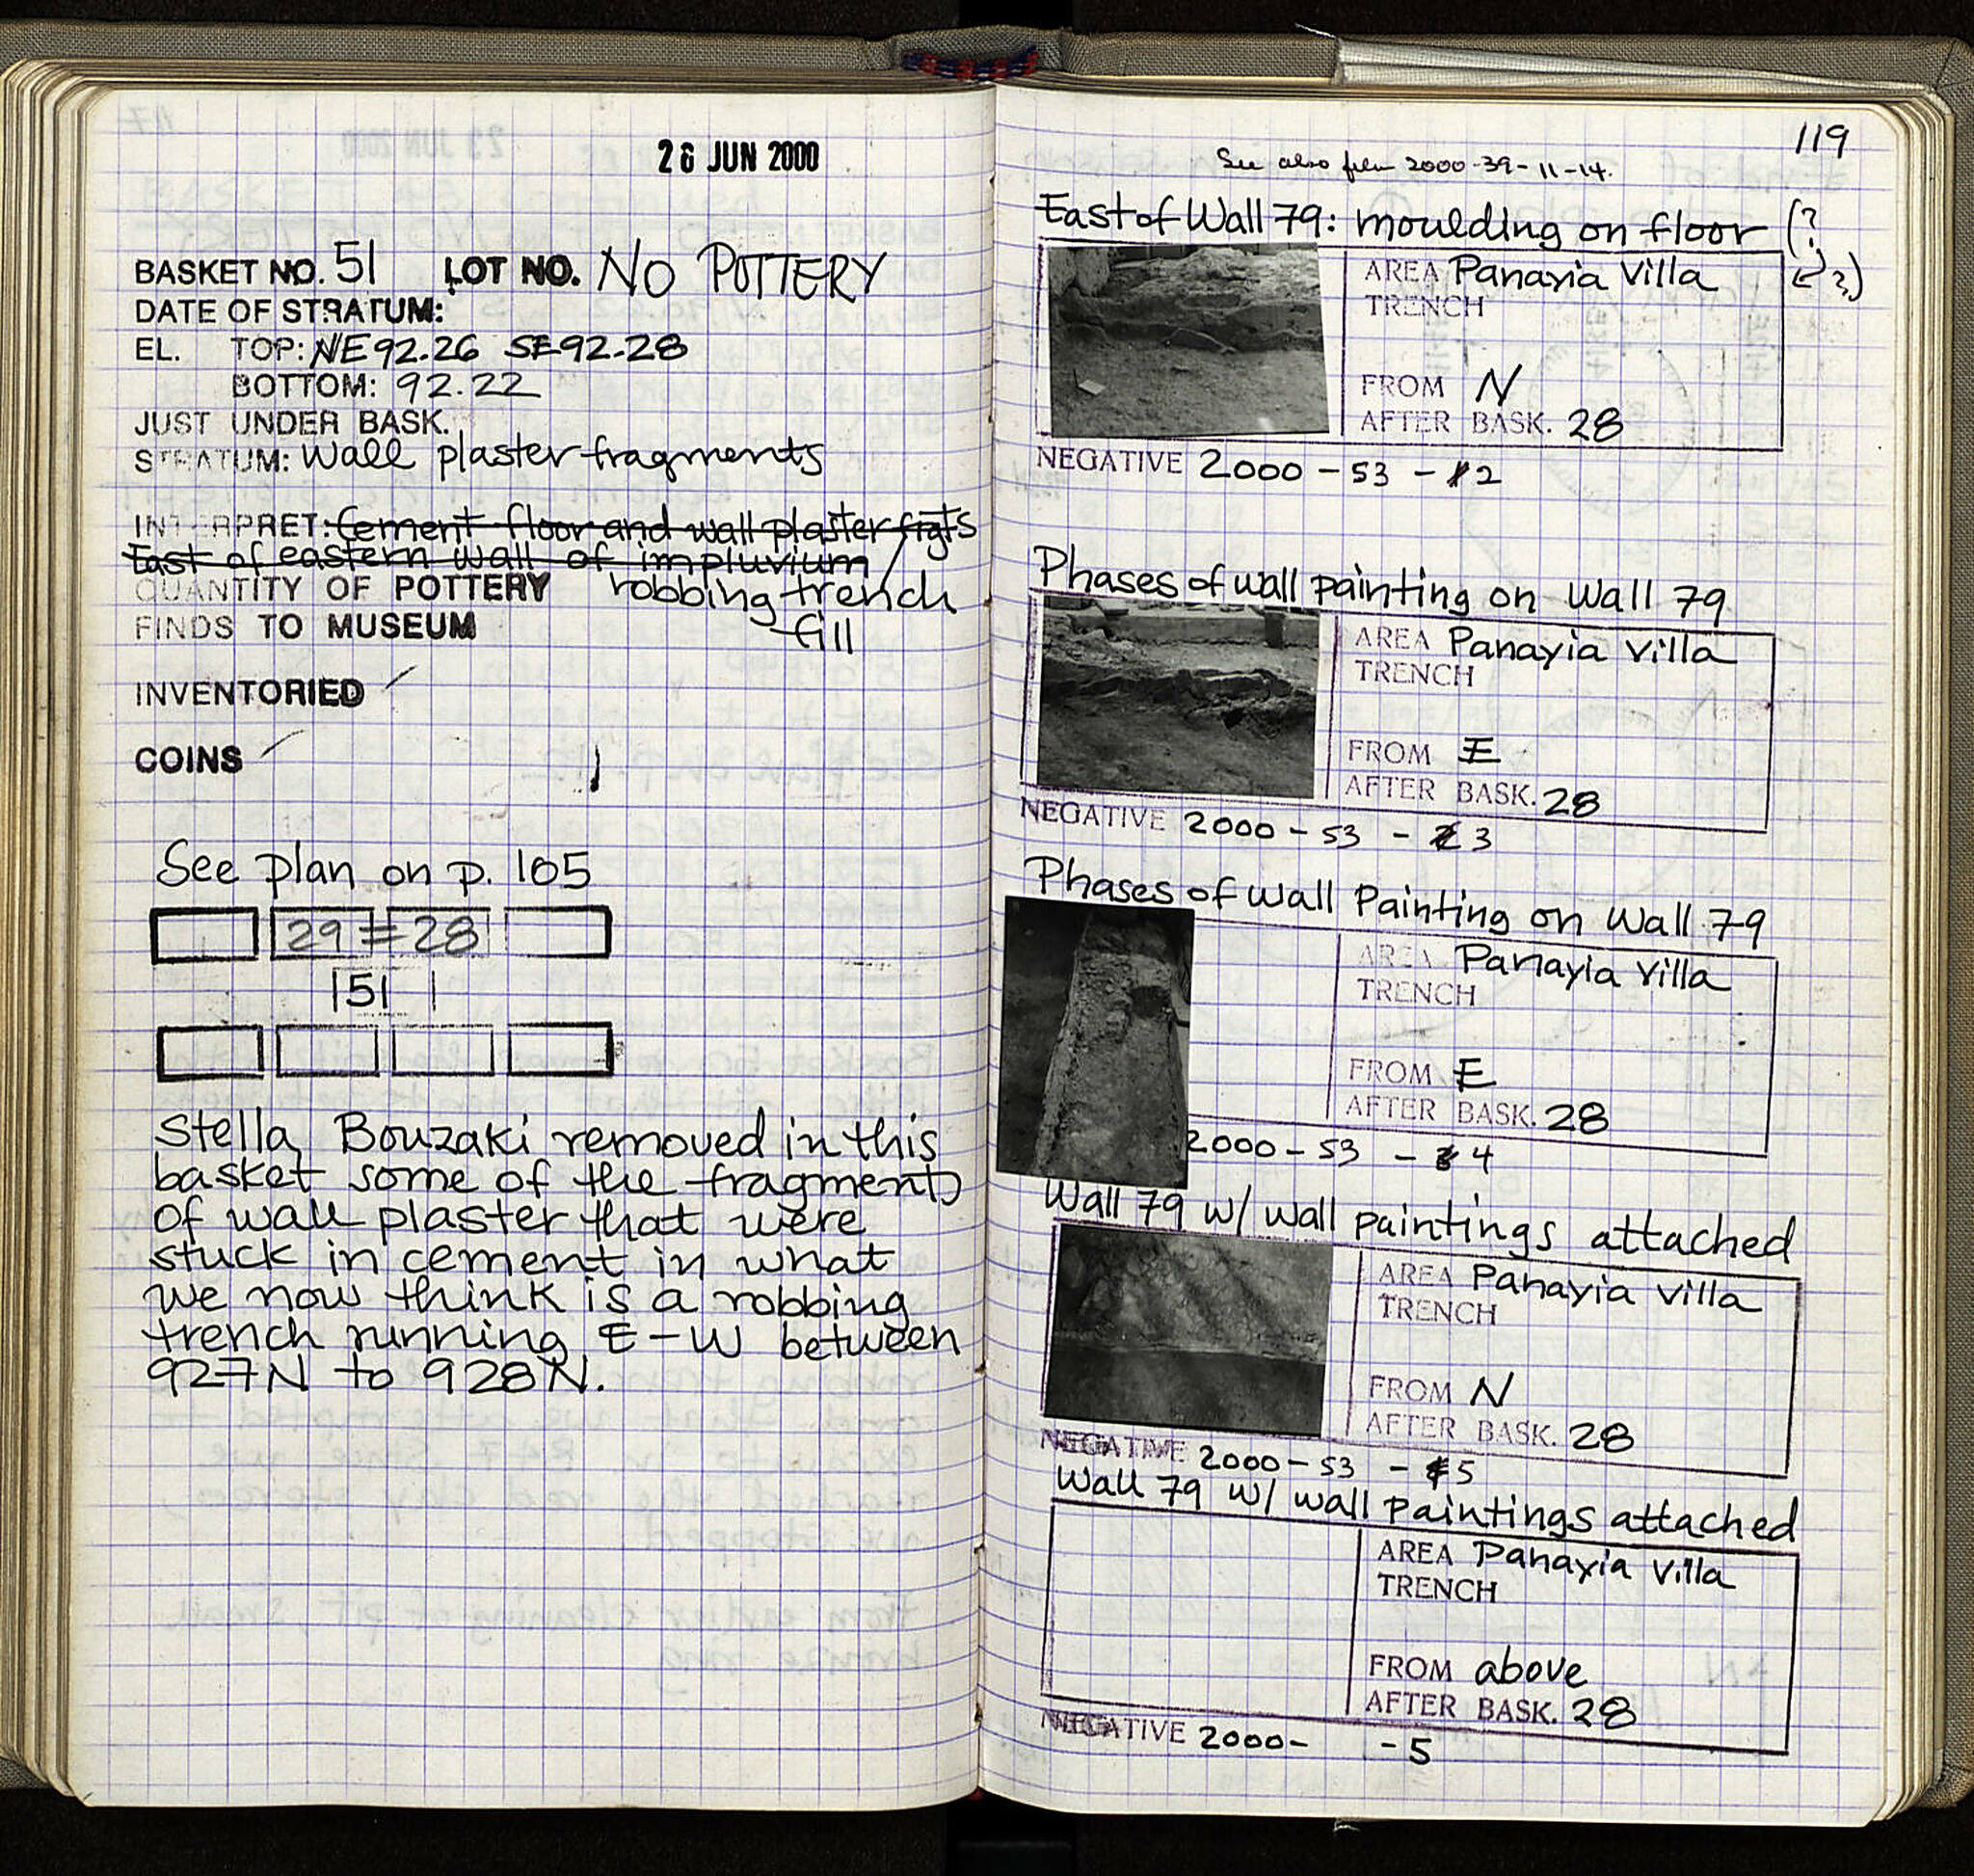 26 JUN 2000
BASKET NO. 51 LOT NO. NO POTTERY
DATE OF STRATUM:
EL. TOP: NE 92.26 SE 92.28
BOTTOM: 92.22
JUST UNDER BASK.
STRATUM: wall plaster fragments
INTERPRET: Cement floor and wall plaster frgts
East of eastern wall of impluvium /
QUANTITY OF POTTERY robbing trench
FINDS TO MUSEUM fill
INVENTORIED
COINS
See plan on p. 105
29 = 28
51
Stella Bouzaki removed in this
basket some of the fragments
of wall plaster that were
stuck in cement in what
we now think is a robbing
trench running E-W between
927N to 928N.
119
See also film 2000-39-11-14.
East of Wall 79: moulding on floor (?
?)
AREA Panayia Villa
TRENCH
FROM N
AFTER BASK. 28
NEGATIVE 2000-53-2
Phases of wall painting on Wall 79
AREA Panayia Villa
TRENCH
FROM E
AFTER BASK. 28
NEGATIVE 2000-53-3
Phases of Wall Painting on Wall 79
AREA Panayia Villa
TRENCH
FROM E
AFTER BASK. 28
2000-53-4
Wall 79 w/ wall paintings attached
AREA Panayia Villa
TRENCH
FROM N
AFTER BASK. 28
NEGATIVE 2000-53-5
Wall 79 w/ wall paintings attached
AREA Panayia Villa
TRENCH
FROM above
AFTER BASK. 28
NEGATIVE 2000- -5